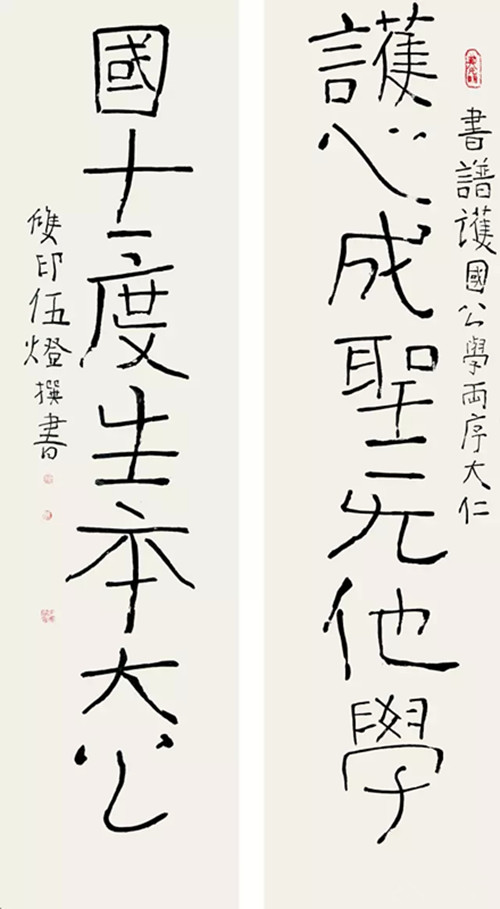 書譜護國公學兩序大仁
護心成聖无他學
國土度生本大公
雙印伍燈撰書